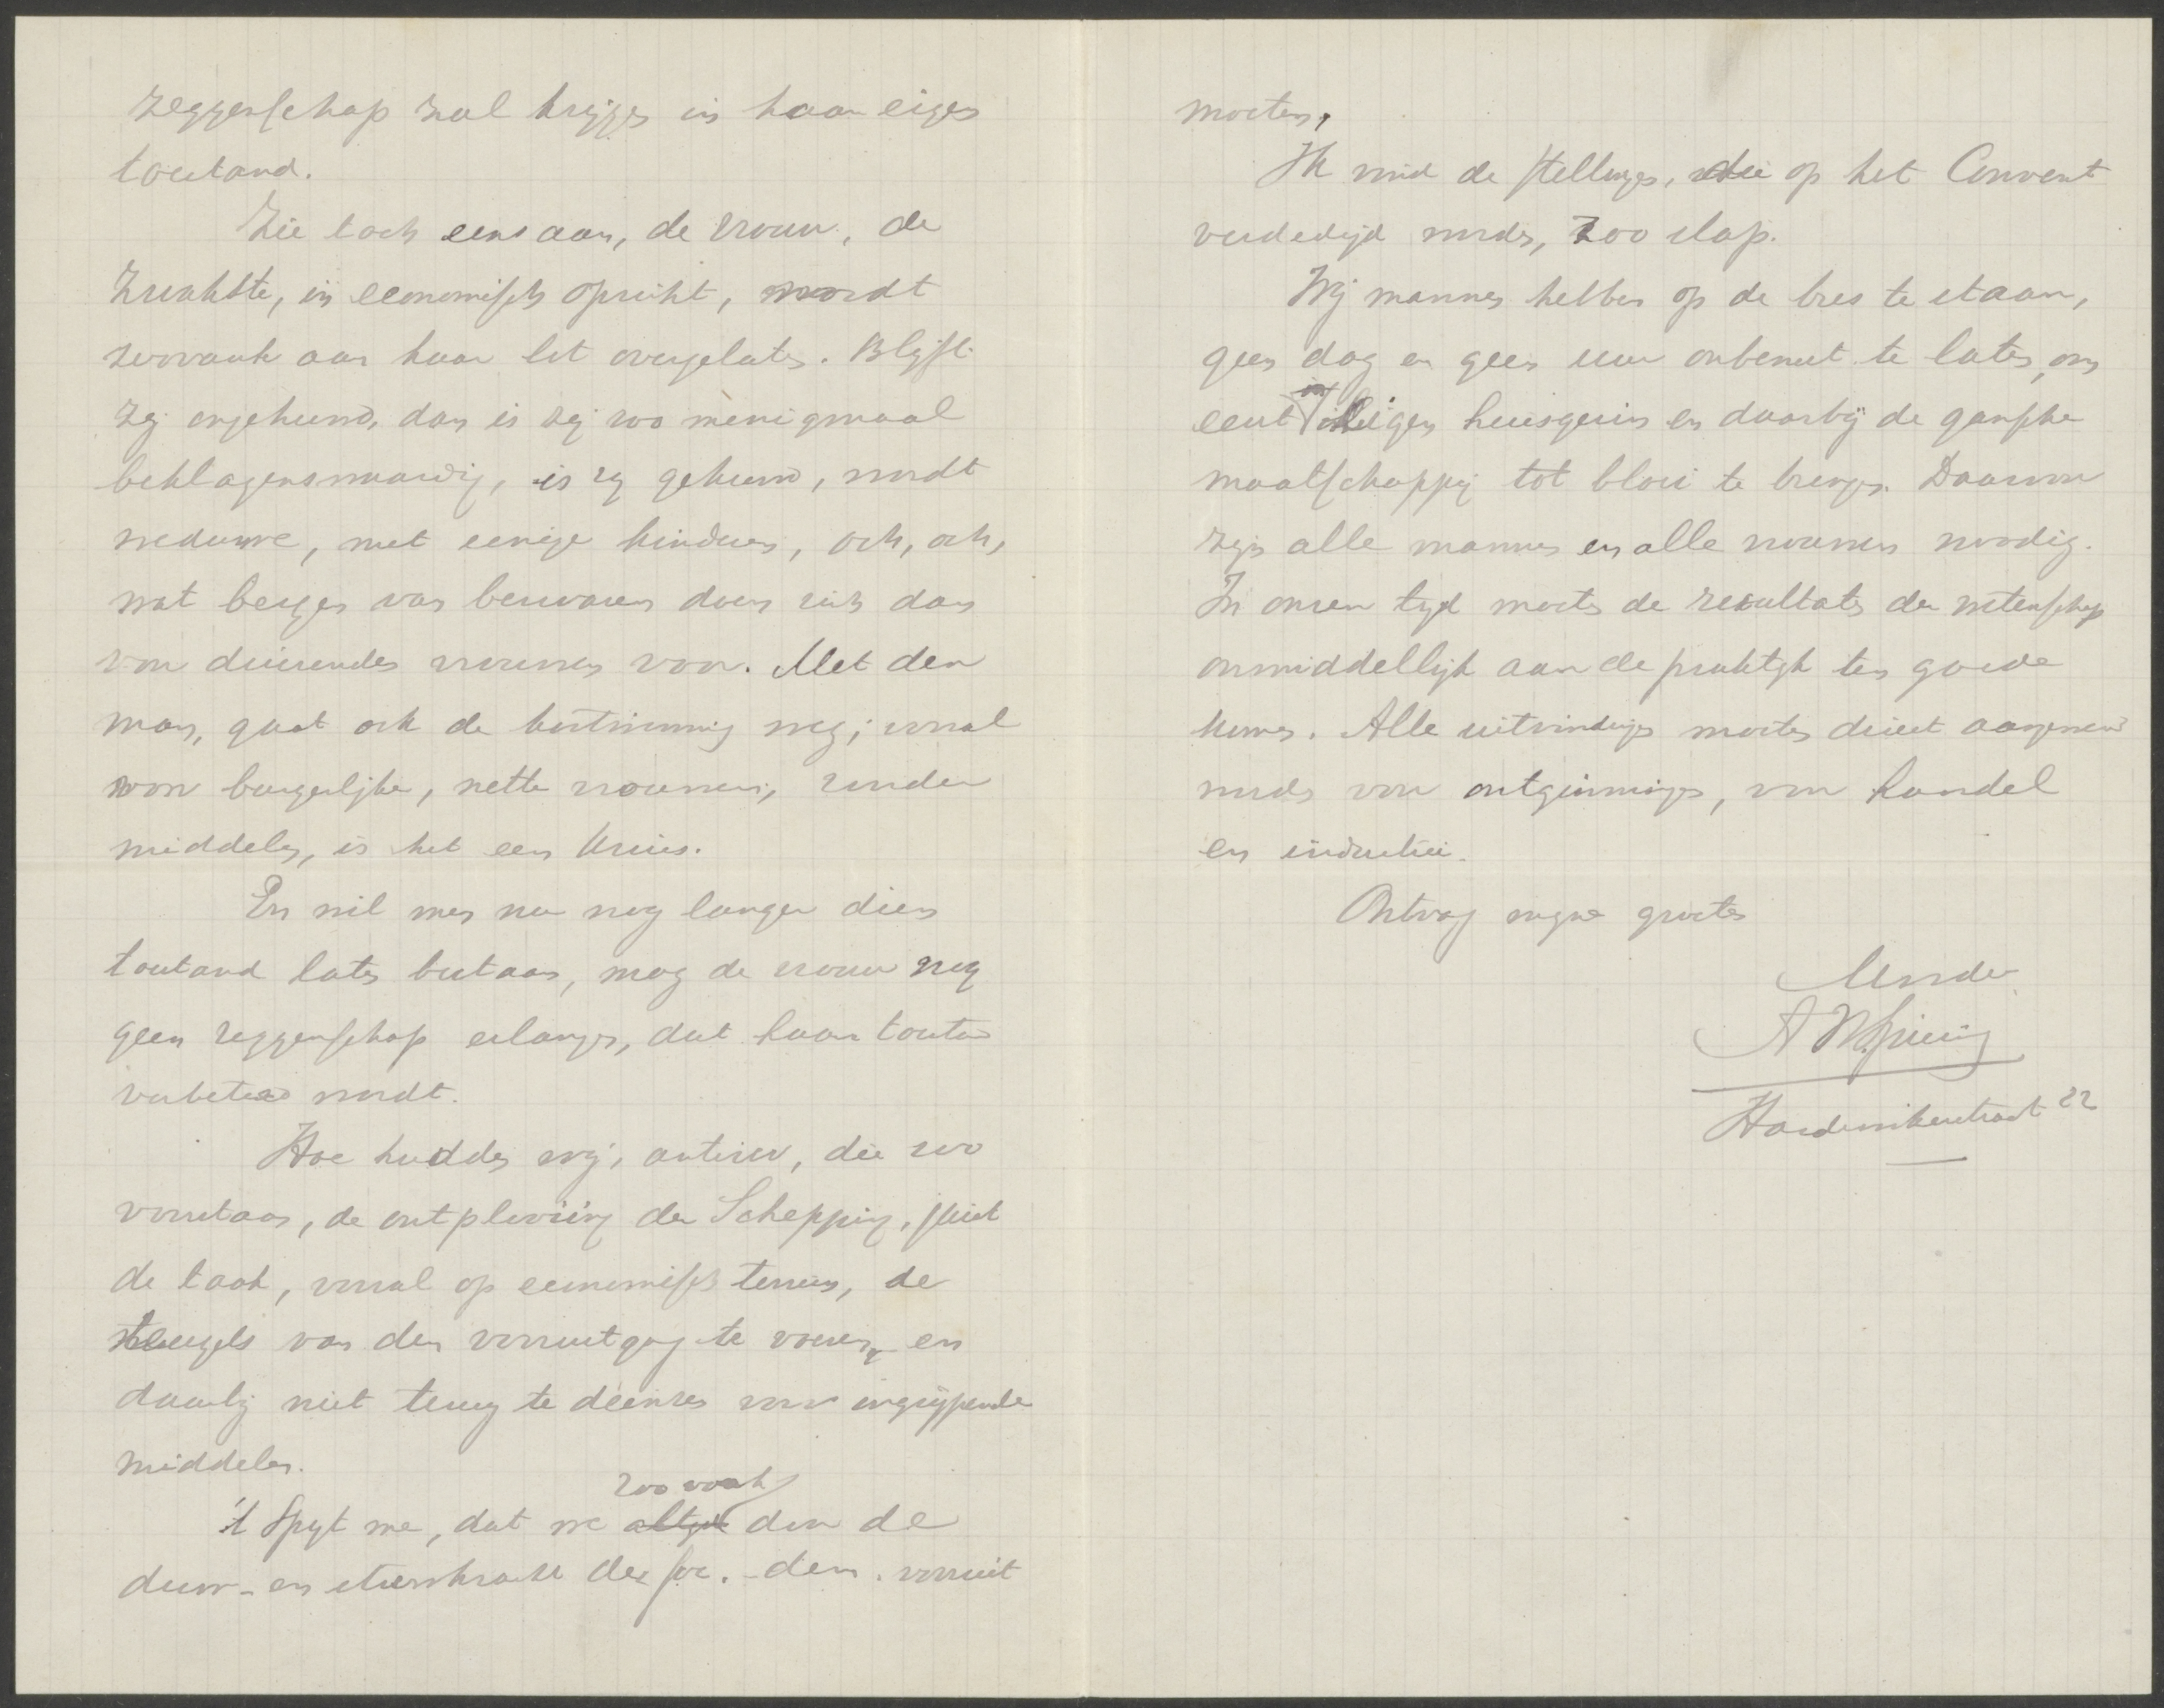 zeggenschap zal krijgen in haar eigen
toestand.
Zie toch eens aan, de vrouw, de
zwakste, in economisch opzicht, wordt
zoovaak aan haar lot overgelaten. Blijft
zij ongehuwd, dan is zij zoo menigmaal
beklagenswaardig, is zij gehuwd, wordt
weduwe, met eenige kinderen, och, och,
wat bergen van bezwaren doen zich dan
voor duizenden vrouwen voor. Met den
man, gaat ook de kostwinning weg; vooral
voor burgerlijke, nette vrouwen, zonder
middelen, is het een kruis.
En wil men nu nog langer dien
toestand laten bestaan, mag de vrouw nog
geen zeggenschap erlangen, dat haar toestand
verbeterd wordt.
Hoe hadden wij, antirev, die zoo
voorstaan, de ontplooiing der Schepping, juist
de taak, vooral op economisch terrein, de
teugels van den vooruitgang te voeren, en
daarbij niet terug te deinzen voor ingrijpende
middelen.
't Spijt me, dat we altijd zoo vaak door de
duw- en stuwkracht der soc. dem. vooruit
moeten.
Ik vind de stellingen, die op het Convent
verdedigd worden, zoo slap.
Wij mannen hebben op de bres te staan,
geen dag en geen uur onbenut te laten, om
eerst 't eigen huisgezin en daarbij de gansche
maatschappij tot bloei te brengen. Daarvoor
zijn alle mannen en alle vrouwen noodig.
In onzen tijd moeten de resultaten der wetenschap
onmiddellijk aan de praktijk ten goede
komen. Alle uitvindingen moeten direct aangewend
worden voor ontginningen, voor handel
en industrie.
Ontvang mijne groeten
Harderwijkerstraat 22